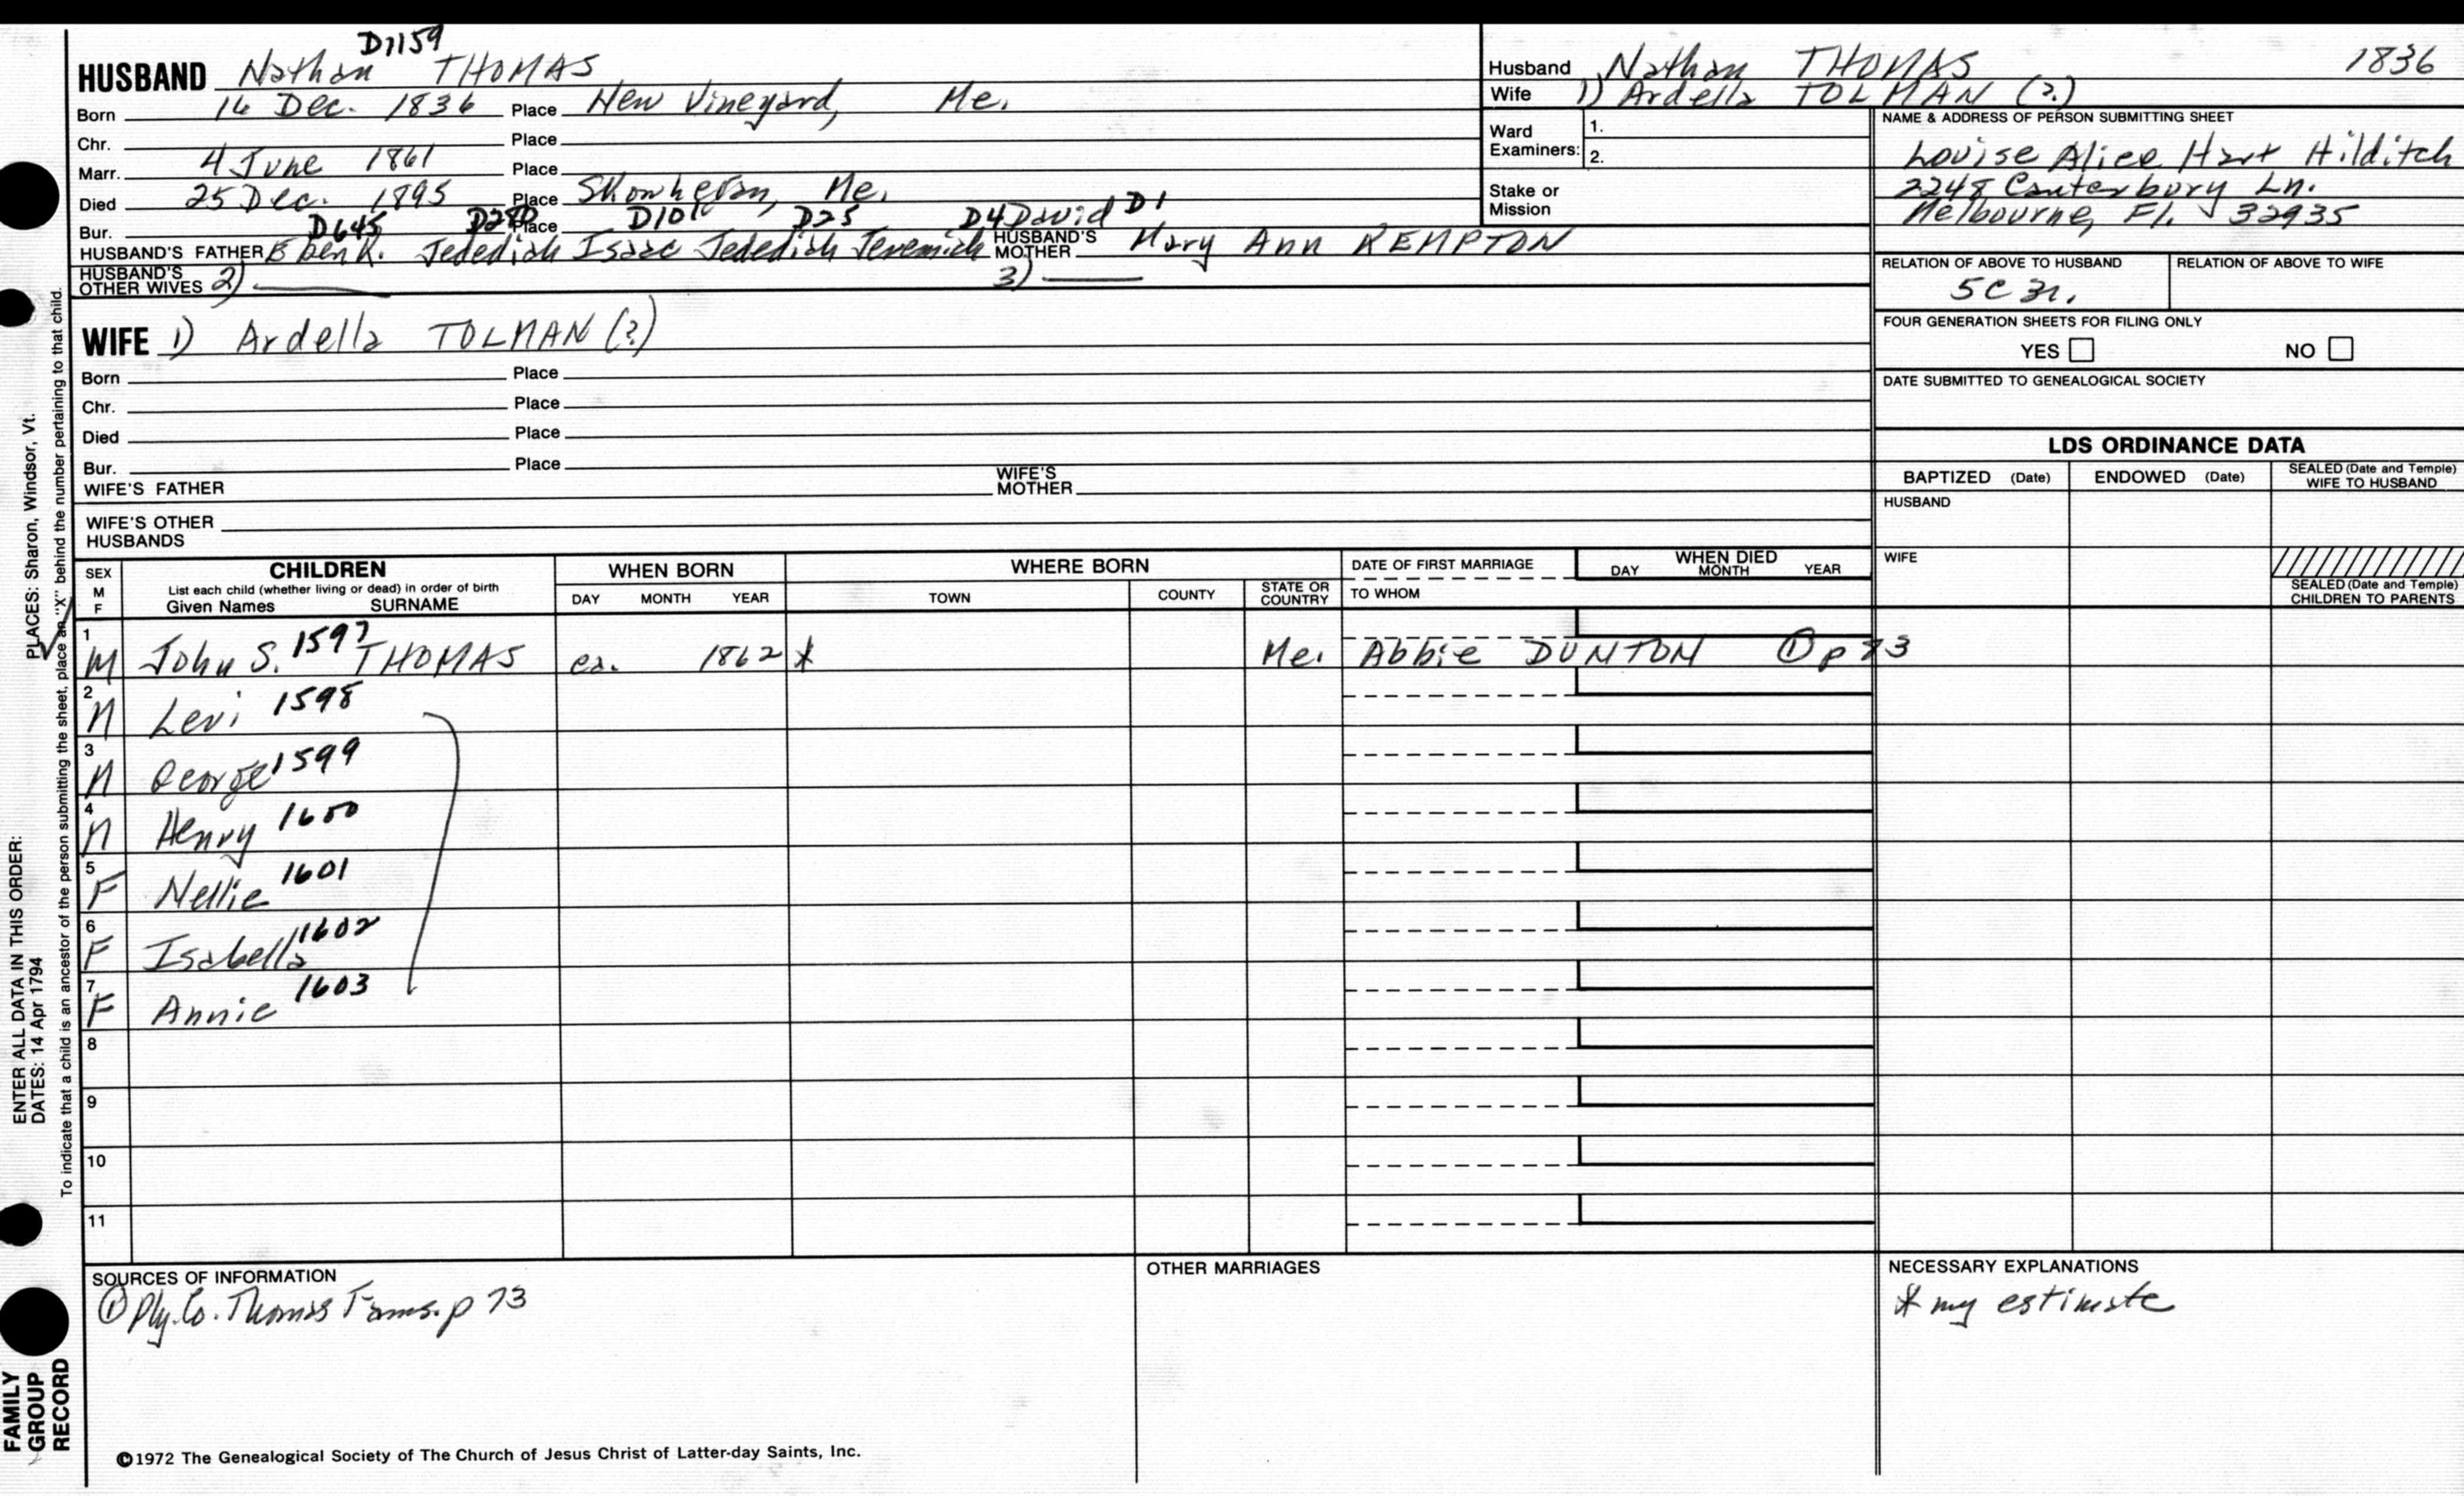 D1159
HUSBAND Nathan THOMAS
Born 16 Dec. 1836 Place New Vineyard, Me.
Chr. Place
Marr. 4 June 1861 Place
Died 25 Dec. 1895 Place Skowhegan, Me.
Bur. Place
D645 D280 D101 D25 D4 David D1
HUSBAND'S FATHER Eben R. Jedediah Isaac Jedediah Jeremiah HUSBAND'S MOTHER Mary Ann KEMPTON
HUSBAND'S OTHER WIVES 2) 3)
WIFE 1) Ardella TOLMAN (?)
Born Place
Chr. Place
Died Place
Bur. Place
WIFE'S FATHER WIFE'S MOTHER
WIFE'S OTHER HUSBANDS
Husband Nathan THOMAS 1836
Wife 1) Ardella TOLMAN (?)
Ward Examiners: 1.
2.
Stake or Mission
NAME & ADDRESS OF PERSON SUBMITTING SHEET
Louise Alice Hart Hilditch
2248 Canterbury Ln.
Melbourne, Fl. 32935
RELATION OF ABOVE TO HUSBAND RELATION OF ABOVE TO WIFE
5C 3r.
FOUR GENERATION SHEETS FOR FILING ONLY
YES NO
DATE SUBMITTED TO GENEALOGICAL SOCIETY
LDS ORDINANCE DATA
BAPTIZED (Date) ENDOWED (Date) SEALED (Date and Temple) WIFE TO HUSBAND
HUSBAND
WIFE
SEALED (Date and Temple) CHILDREN TO PARENTS
SEX M F
CHILDREN
List each child (whether living or dead) in order of birth
Given Names SURNAME
WHEN BORN
DAY MONTH YEAR
WHERE BORN
TOWN COUNTY STATE OR COUNTRY
DATE OF FIRST MARRIAGE
TO WHOM
WHEN DIED
DAY MONTH YEAR
1 M John S. 1597 THOMAS ca. 1862 * Me. Abbie DUNTON ① p 73
2 M Levi 1598
3 M George 1599
4 M Henry 1600
5 F Nellie 1601
6 F Isabella 1602
7 F Annie 1603
8
9
10
11
SOURCES OF INFORMATION
① Ply. Co. Thomas Fams. p 73
OTHER MARRIAGES
NECESSARY EXPLANATIONS
* my estimate
©1972 The Genealogical Society of The Church of Jesus Christ of Latter-day Saints, Inc.
ENTER ALL DATA IN THIS ORDER:
DATES: 14 Apr 1794 PLACES: Sharon, Windsor, Vt.
To indicate that a child is an ancestor of the person submitting the sheet, place an "X" behind the number pertaining to that child.
FAMILY
GROUP
RECORD